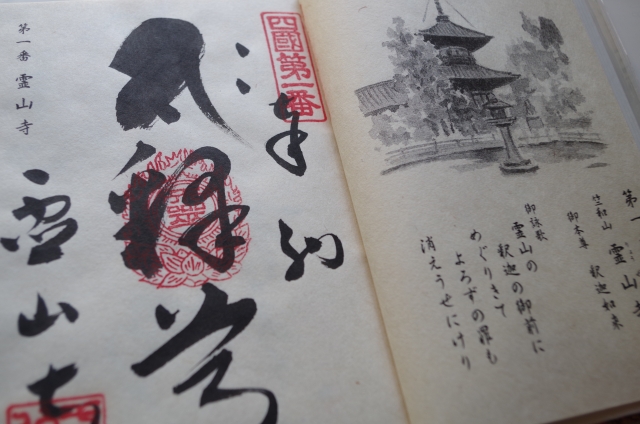 第一 霊山寺
竺和山
御本尊 釈迦如来
御詠歌
霊山の釈迦の御前に
めぐりきて
よろずの罪も
消えうせにけり
四國第一番
奉納
釋
霊山寺
第一番 霊山寺